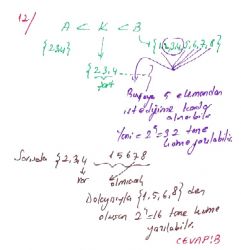 12/
A ⊂ K ⊂ B
{2,3,4} {1,2,3,4,5,6,7,8}
{2,3,4
şart
Buraya 5 elemandan
istediğimiz kadar
alınabilir
Yani = 2⁵ = 32 tane
küme yazılabilir.
Soruda {2,3,4 1 5 6 7 8
var olmasın
Dolayısıyla {1,5,6,8} den
oluşan 2⁴=16 tane küme
yazılabilir.
CEVAP:B